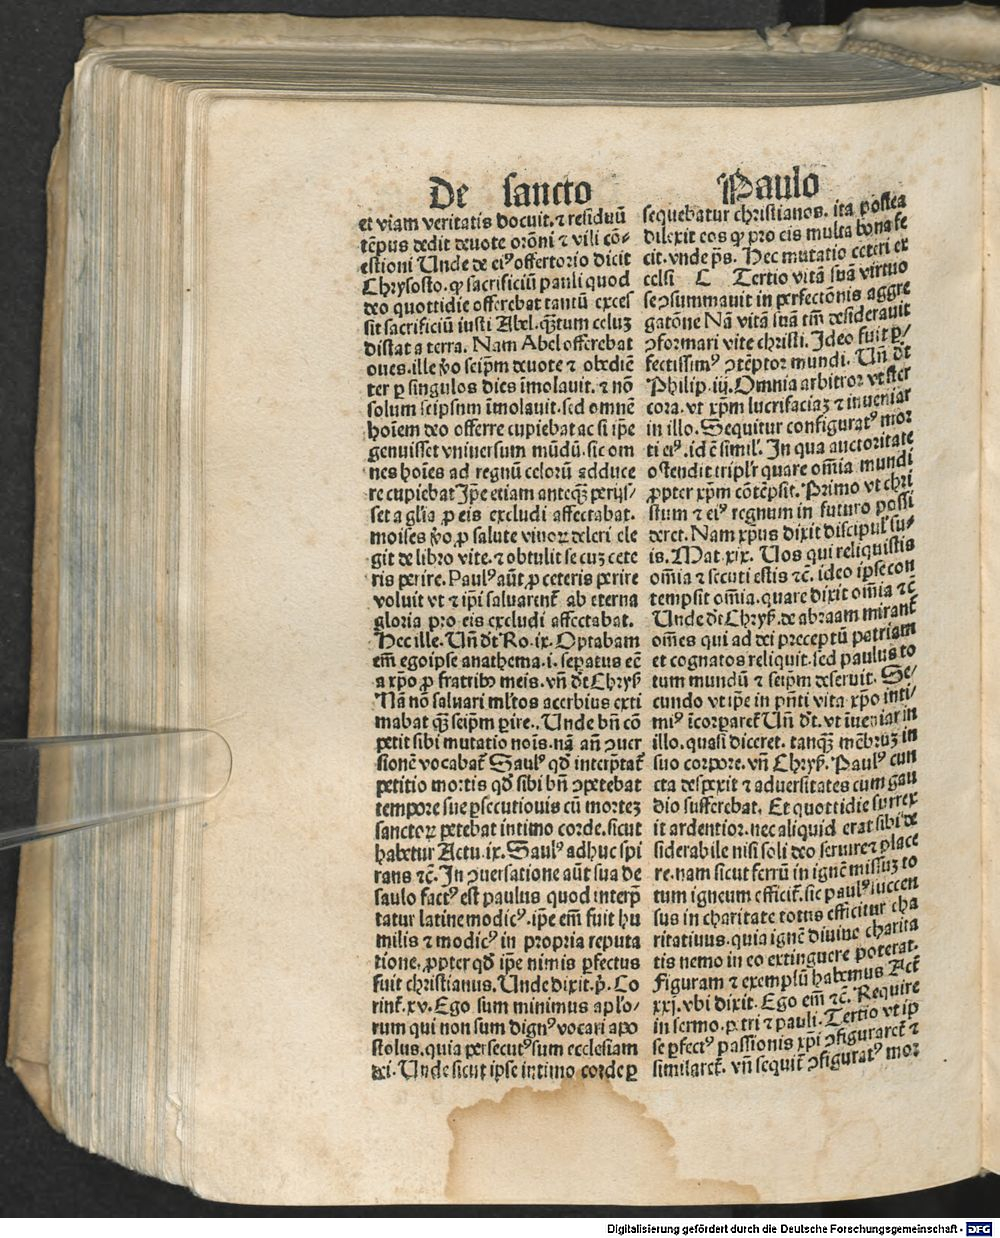 De sancto Paulo
et viam veritatis docuit. ⁊ residuū
tēpus dedit deuote orōni ⁊ vili cō-
estioni Unde de ei⁹ offertorio dicit
Chrysosto. ꝙ sacrificiū pauli quod
deo quottidie offerebat tantū exces
sit sacrificiū iusti Abel. qꝫ̄tum celuꝫ
distat a terra. Nam Abel offerebat
oues. ille ꝟo seip̄m deuote ⁊ obediē
ter ꝑ singulos dies īmolauit. ⁊ nō
solum seipsum īmolauit. sed omnē
hoīem deo offerre cupiebat ac si ip̄e
genuisset vniuersum mūdū. sic om
nes hoīes ad regnū celorū adduce
re cupiebat Ip̄e etiam anteqꝫ̄ perijs-
set a gl̄ia ꝓ eis excludi affectabat.
moises ꝟo ꝓ salute viuoꝝ deleri ele
git de libro vite. ⁊ obtulit se cuꝫ cete
ris perire. Paul⁹ aūt ꝓ ceteris perire
voluit vt ⁊ ip̄i saluarent̄ ab eterna
gloria pro eis excludi affectabat.
Hec ille. Un̄ dt̄ Ro. ix. Optabam
em̄ egoipse anathema .i. sep̲atus eē
a xp̄o ꝓ fratribꝰ meis. vn̄ dt̄ Chryẜ
Nā nō saluari ml̄tos acerbius exti
mabat qꝫ̄ seip̄m ꝑire. Unde bn̄ cō
petit sibi mutatio noīs. nā an̄ ꝯuer
sionē vocabat̄ Saul⁹ qd̄ interp̄tat̄
petitio mortis qd̄ sibi bn̄ ꝯpetebat
tempore sue ꝑsecutiouis cū morteꝫ
sanctoꝝ petebat intimo corde. sicut
habetur Actu. ix. Saul⁹ adhuc spi
rans ⁊c̄. In ꝯuersatione aūt sua de
saulo fact⁹ est paulus quod interp̄
tatur latine modic⁹. ip̄e em̄ fuit hu
milis ⁊ modic⁹ in propria reputa
tione. ꝓpter qd̄ ip̄e nimis ꝑfectus
fuit christianus. Unde dixit. p̄. Co
rint̄. xv. Ego sum minimus apl̄o-
rum qui non sum dign⁹ vocari apo
stolus. quia persecut⁹ sum ecclesiam
dei. Unde sicut ipse intimo corde ꝑ
sequebatur christianos. ita postea
dilexit eos ꝙ pro eis multa bona fe
cit. vnde p̄s. Hec mutatio dextere ex
celsi C Tertio vitā suā virtuo
se ꝯsummauit in perfectōnis aggre
gatōne Nā vitā suā tm̄ desiderauit
ꝯformari vite christi. Ideo fuit ꝑ-
fectissim⁹ ꝯtēptor mundi. Un̄ dt̄
Philip. iij. Omnia arbitror vt ster
cora. vt xp̄m lucrifaciaꝫ ⁊ inueniar
in illo. Sequitur configurat⁹ mor
ti ei⁹. id ē simil̄. In qua auctoritate
ostendit tripl̄r quare om̄ia mundi
ꝓpter xp̄m cōtēpsit. Primo vt chri
stum ⁊ ei⁹ regnum in futuro possi
deret. Nam xp̄us dixit discipul̄ su-
is. Mat. xix. Uos qui reliquistis
om̄ia ⁊ secuti estis ⁊c̄. ideo ipse con
tempsit om̄ia. quare dixit om̄ia ⁊c̄
Unde dt̄ Chryẜ. de abraam mirant̄
om̄es qui ad dei preceptū patriam
et cognatos reliquit. sed paulus to
tum mundū ⁊ seip̄m deseruit. Se-
cundo vt ip̄e in pn̄ti vita xp̄o inti-
mi⁹ īcorꝑaret̄ Un̄ dt̄. vt īueniar in
illo. quasi diceret. tanqꝫ̄ mēbruꝫ in
suo corpore. vn̄ Chryẜ. Paul⁹ cun
cta despexit ⁊ aduersitates cum gau
dio sufferebat. Et quottidie surrex
it ardentior. nec aliquid erat sibi de
siderabile nisi soli deo seruire ⁊ place
re. nam sicut ferrū in ignē missuꝫ to
tum igneum efficit̄. sic paul⁹ succen
sus in charitate totus efficitur cha
ritatiuus. quia ignē diuine charita
tis nemo in eo extinguere poterat.
Figuram ⁊ exemplū habemus Act̄
xxj. vbi dixit. Ego em̄ ⁊c̄. Require
in sermo. petri ⁊ pauli. Tertio vt ip
se ꝑfect⁹ passionis xp̄i ꝯfiguraret̄ ⁊
similaret̄. vn̄ sequit̄ ꝯfigurat⁹ mor
Digitalisierung gefördert durch die Deutsche Forschungsgemeinschaft - DFG